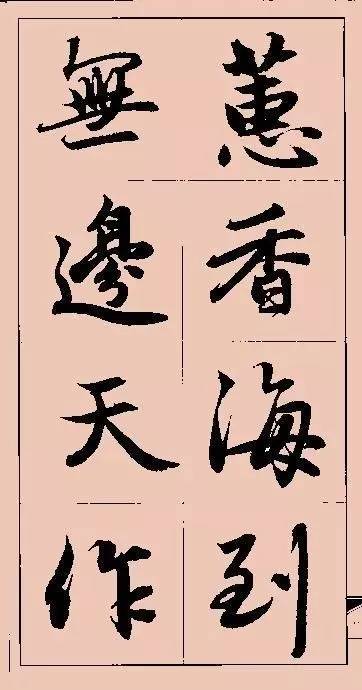 蕙香海到
無邊天作